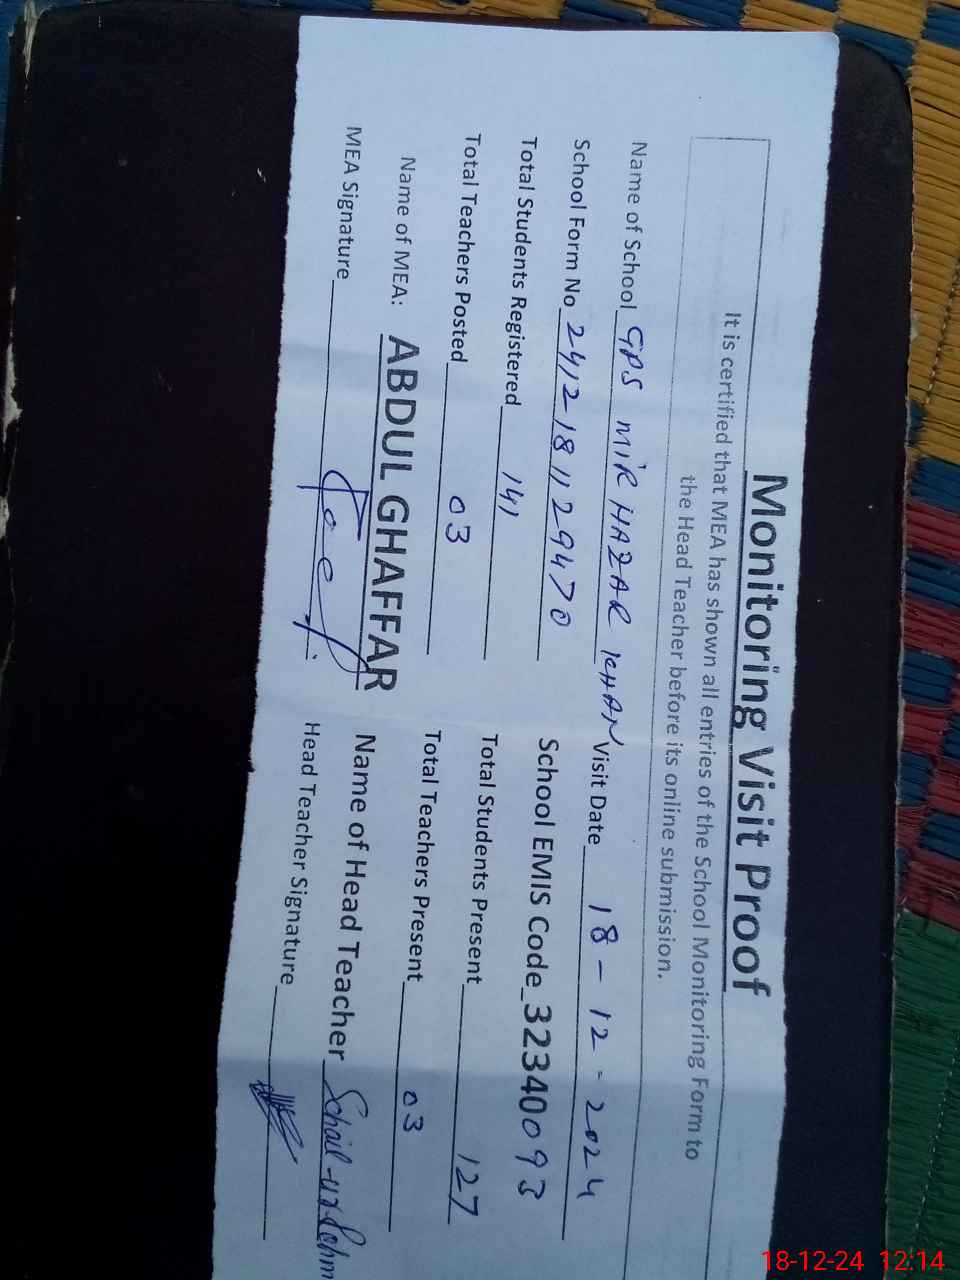 Monitoring Visit Proof
It is certified that MEA has shown all entries of the School Monitoring Form to
the Head Teacher before its online submission.
Name of School GPS MIR HAZAR KHAN Visit Date 18-12-2024
School Form No 2412181129470 School EMIS Code 32340093
Total Students Registered 141 Total Students Present 127
Total Teachers Posted 03 Total Teachers Present 03
Name of MEA: ABDUL GHAFFAR Name of Head Teacher
MEA Signature Head Teacher Signature
18-12-24 12:14